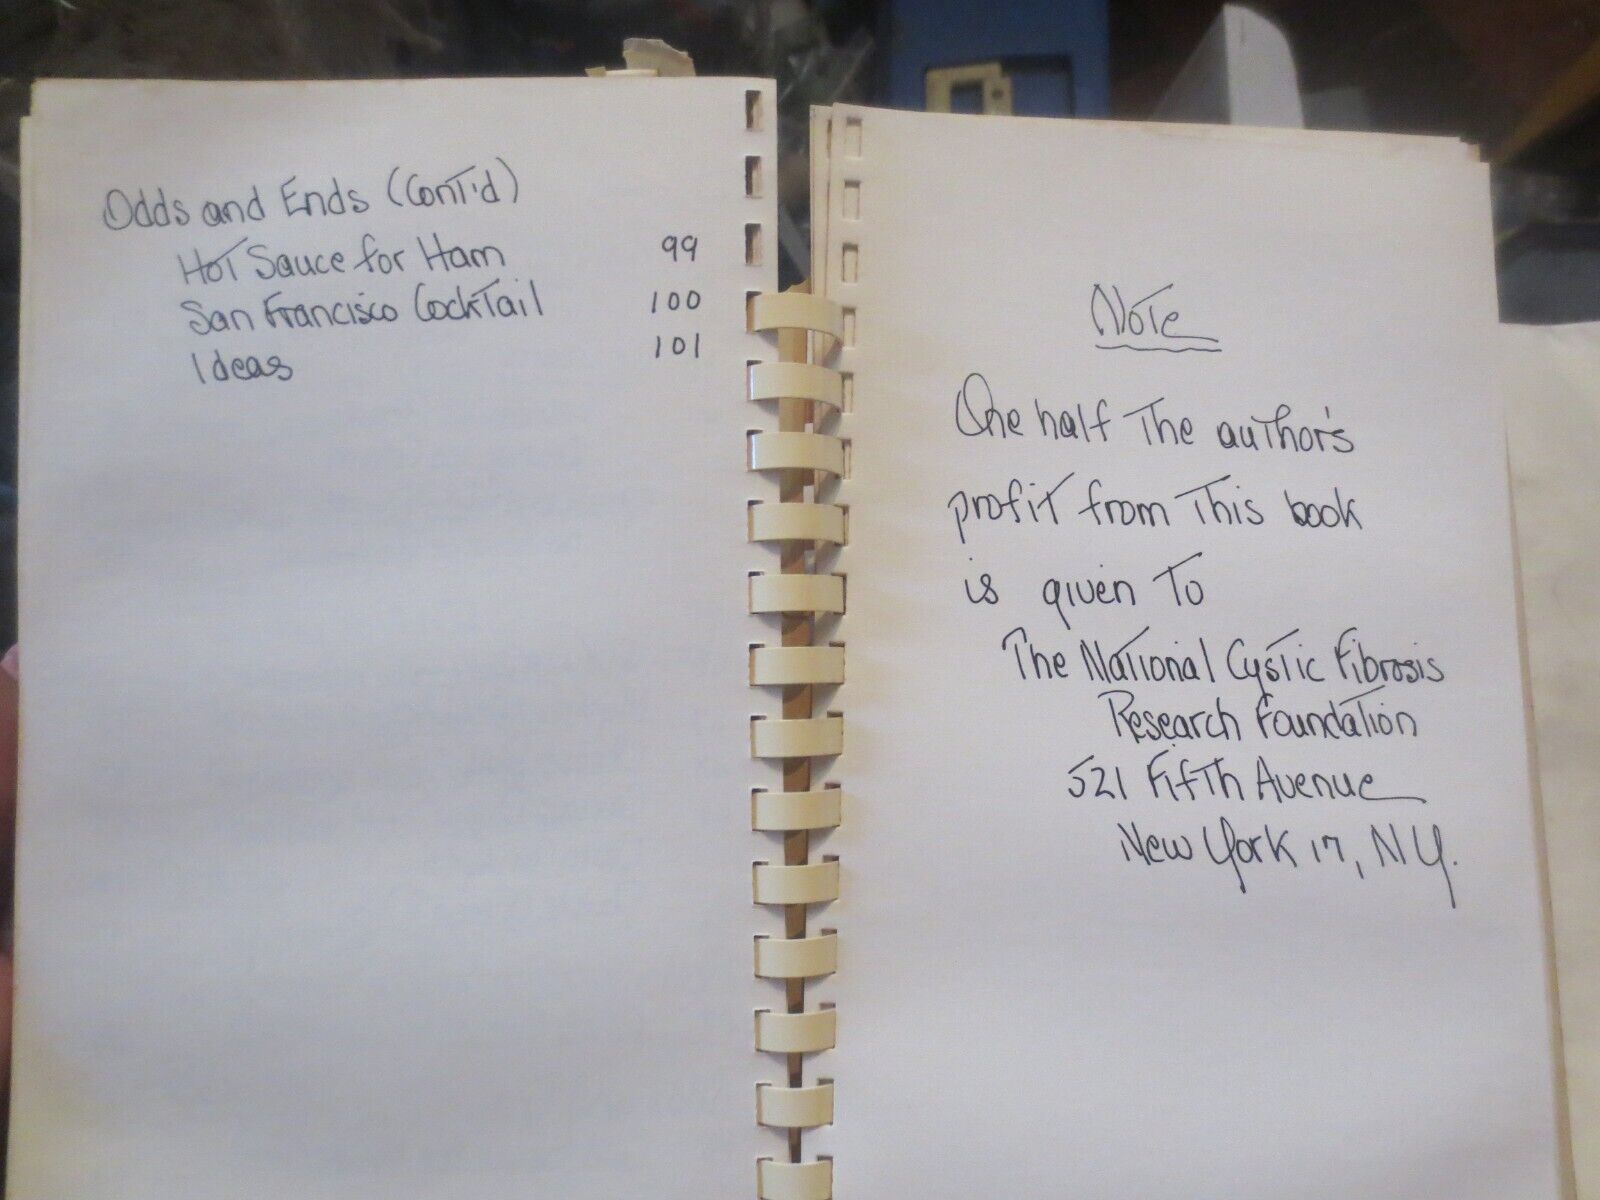 Odds and Ends (Cont'd)
Hot Sauce for Ham 99
San Francisco Cocktail 100
Ideas 101
Note
One half the author's
profit from this book
is given to
The National Cystic Fibrosis
Research Foundation
521 Fifth Avenue
New York 17, N.Y.